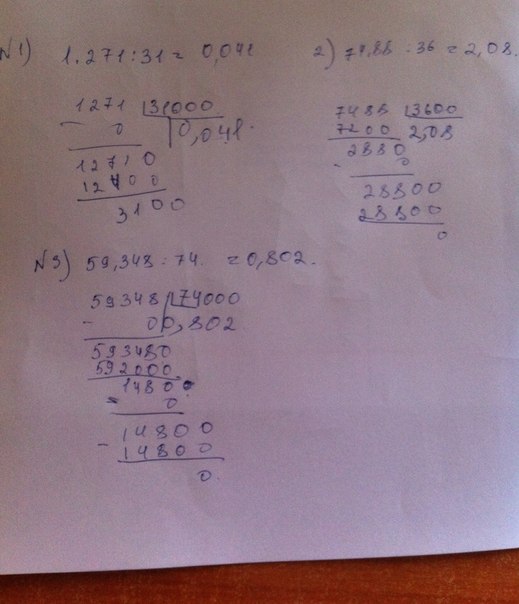 №1) 1.271:31= 0,041
1271 31000
- 0 0,041.
12710
12400
3100
2) 74,88 : 36 = 2,08.
7488 3600
7200 2,08
2880
- 0
28800
28800
0
№3) 59,348:74. =0,802.
59348 74000
- 0 0,802
593480
592000
14800
- 0
14800
- 14800
0.